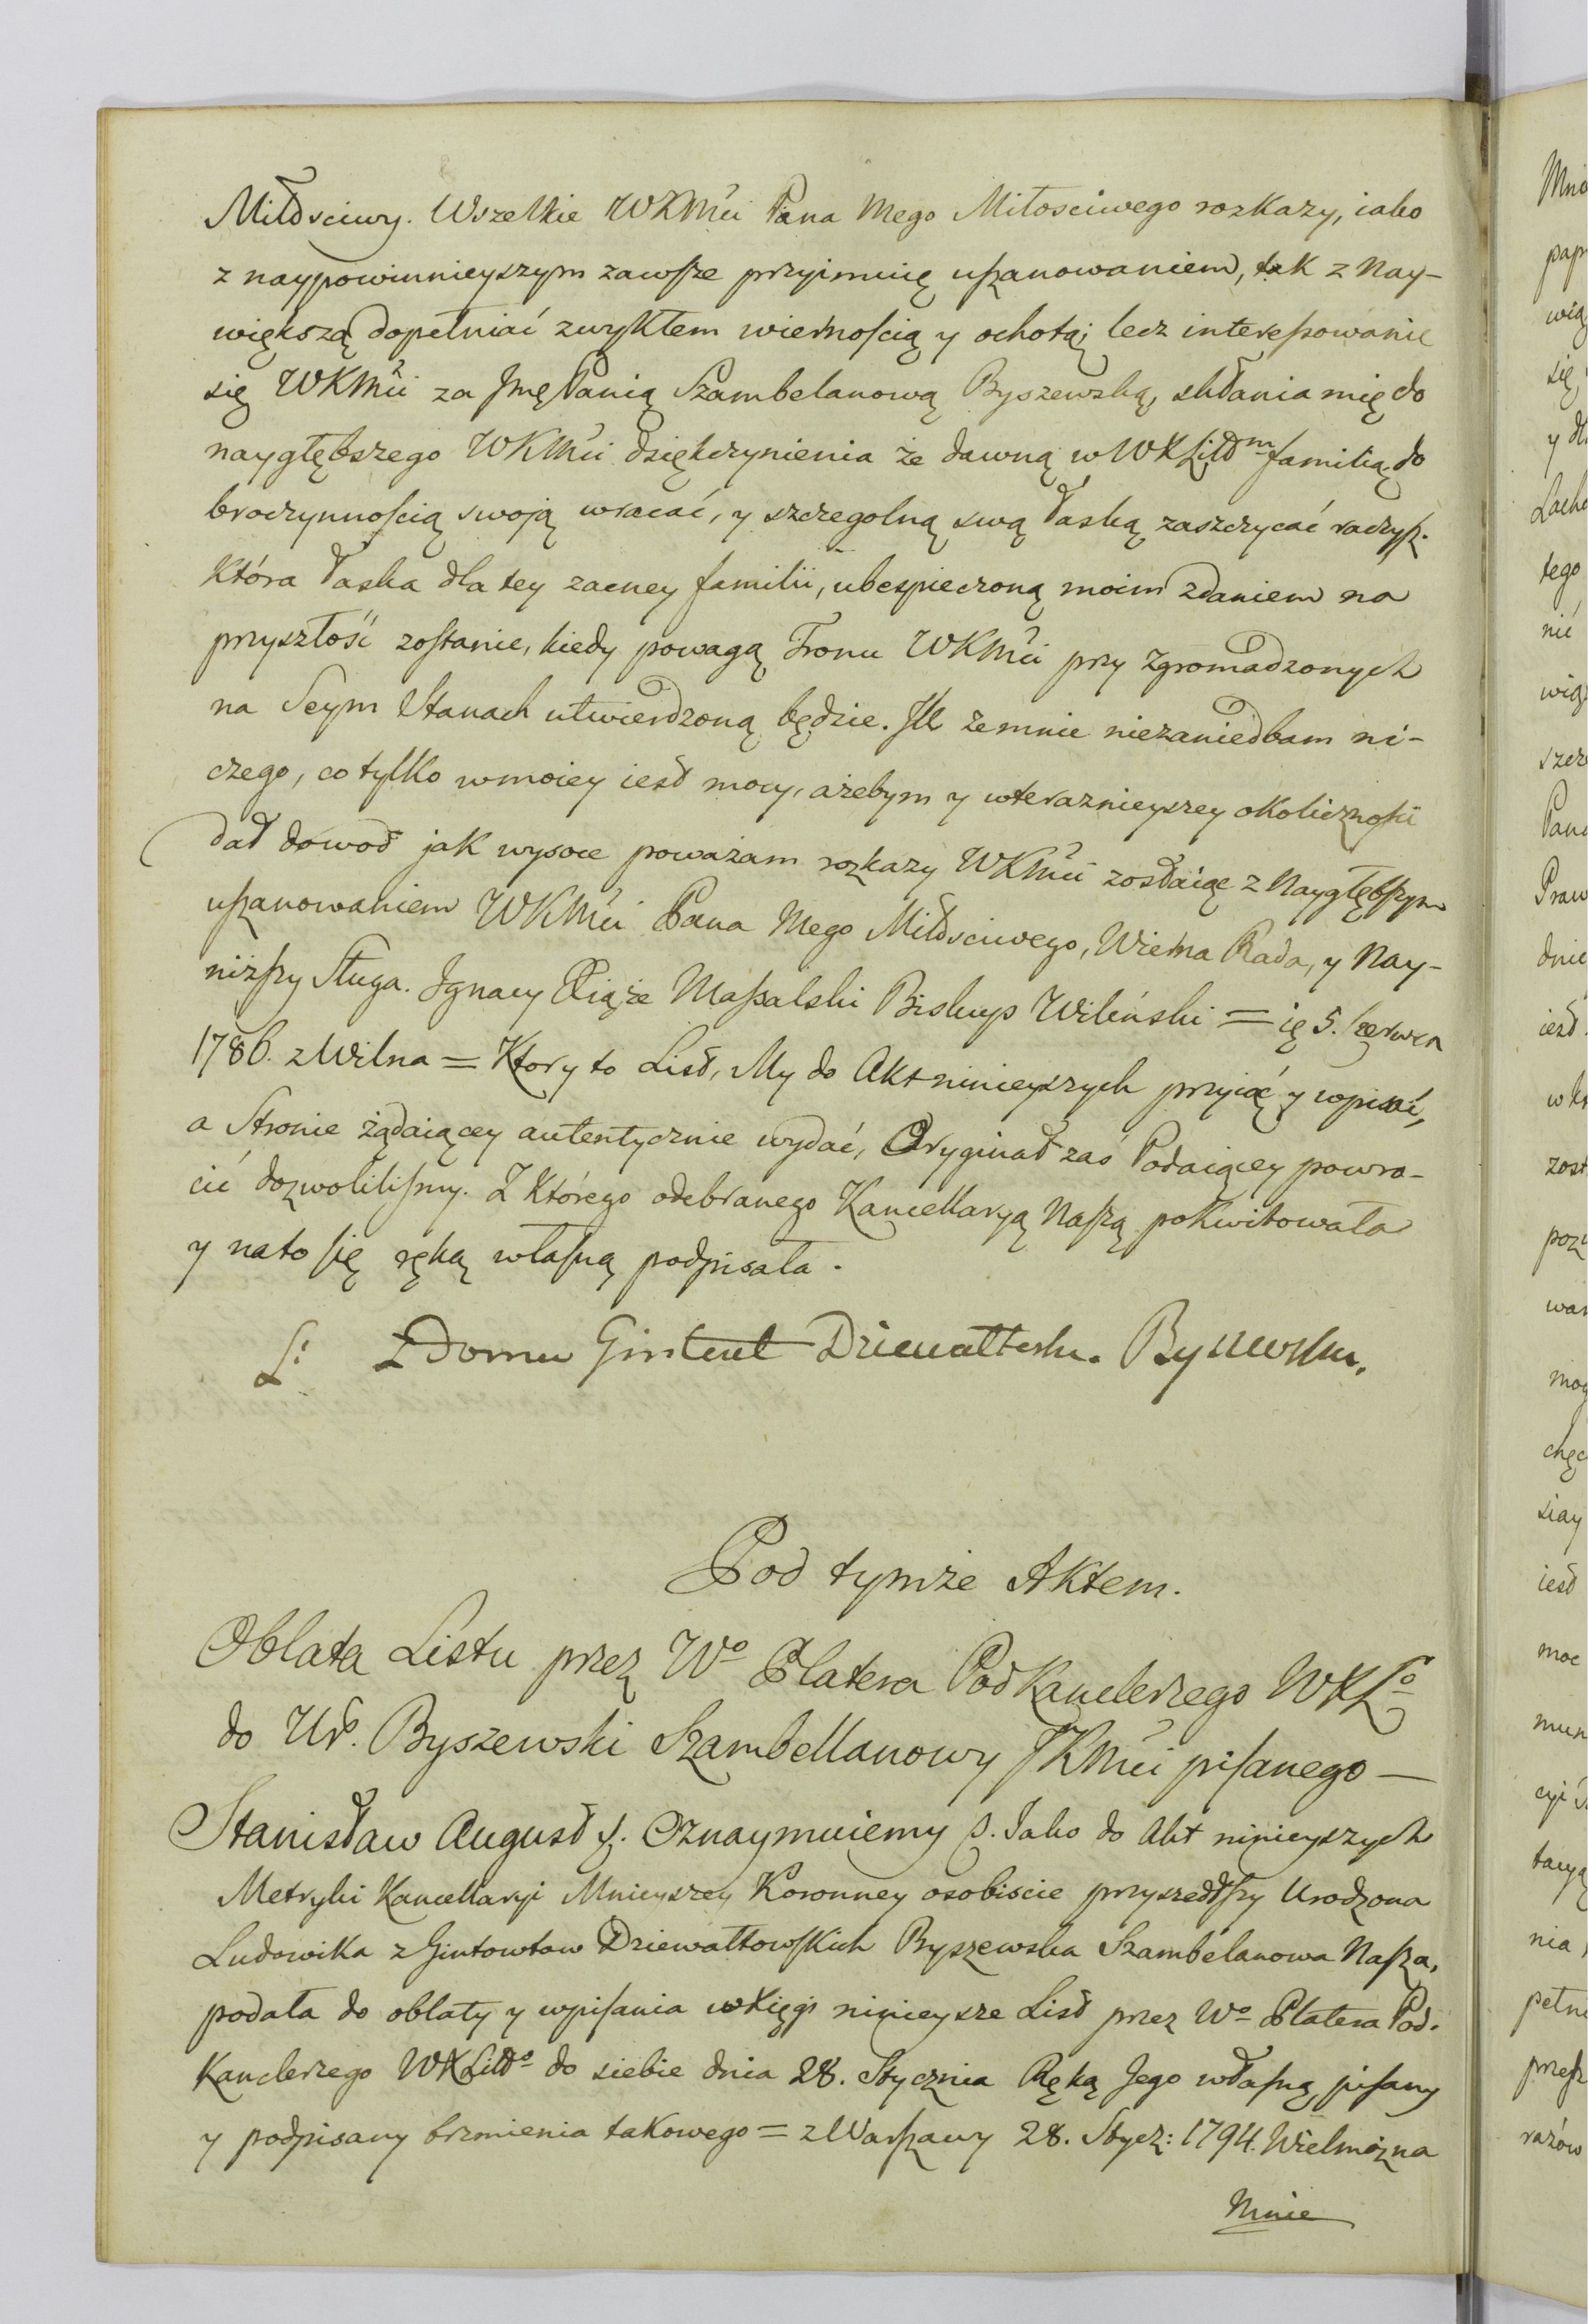 Miłosciwy. Wszelkie WKMci Pana Mego Miłosciwego rozkazy, iako
z naypowinnieyszym zawsze przyimuię uszanowaniem, tak z nay-
większą dopełniać zwykłem wiernością y ochotą; lecz interessowanie
się WKMci za Jmę Panią Szambelanową Byszewską, skłania mię do
naygłębszego WKMci dziękczynienia że dawną w WXLittm familią do
broczynnością swoją wracać, y szczegolną swą łaską zaszczycać raczysz.
Która łaska dla tey zacney familii, ubespieczoną moim zdaniem na
przyszłość zostanie, kiedy powagą Tronu WKMci przy zgromadzonych
na Seym Stanach utwierdzoną będzie. Ile ze mnie niezaniedbam ni-
czego, co tylko w moiey iest mocy, ażebym y w teraznieyszey okoliczności
dał dowod jak wysoce poważam rozkazy WKMci zostaiąc z Naygłębszym
uszanowaniem WKMci Pana Mego Miłosciwego, Wierna Rada, y Nay-
niższy Sługa. Ignacy Xiąże Massalski Biskup Wileński = 5. Czerwca
1786. z Wilna = Ktory to List, My do Akt ninieyszych przyiąć y wpisać,
a Stronie żądaiącey autentycznie wydać, Oryginał zaś Podaiącey powro-
cić dozwolilismy. Z Którego odebranego Kancellaryą Naszą pokwitowała
y na to się ręką własną podpisała.
Z Domu Gintowt Dziewałtoska. Byszewska.
Pod tymże Aktem.
Oblata Listu przez Wo Platera Podkanclerzego WXLo
do Ur. Byszewski Szambellanowy JKMci pisanego —
Stanisław August &. Oznaymuiemy &. Iako do Akt ninieyszych
Metryki Kancellaryi Mnieyszey Koronney osobiscie przyszedłszy Urodzona
Ludowika z Gintowtow Dziewałtowskich Byszewska Szambelanowa Nasza,
podała do oblaty y wpisania w Xięgi ninieysze List przez Wo Platera Pod.
Kanclerzego WXLitto do siebie dnia 28. Stycznia Ręką Jego własną pisany
y podpisany brzmienia takowego = z Warszawy 28. Stycz: 1794. Wielmożna
Mnie